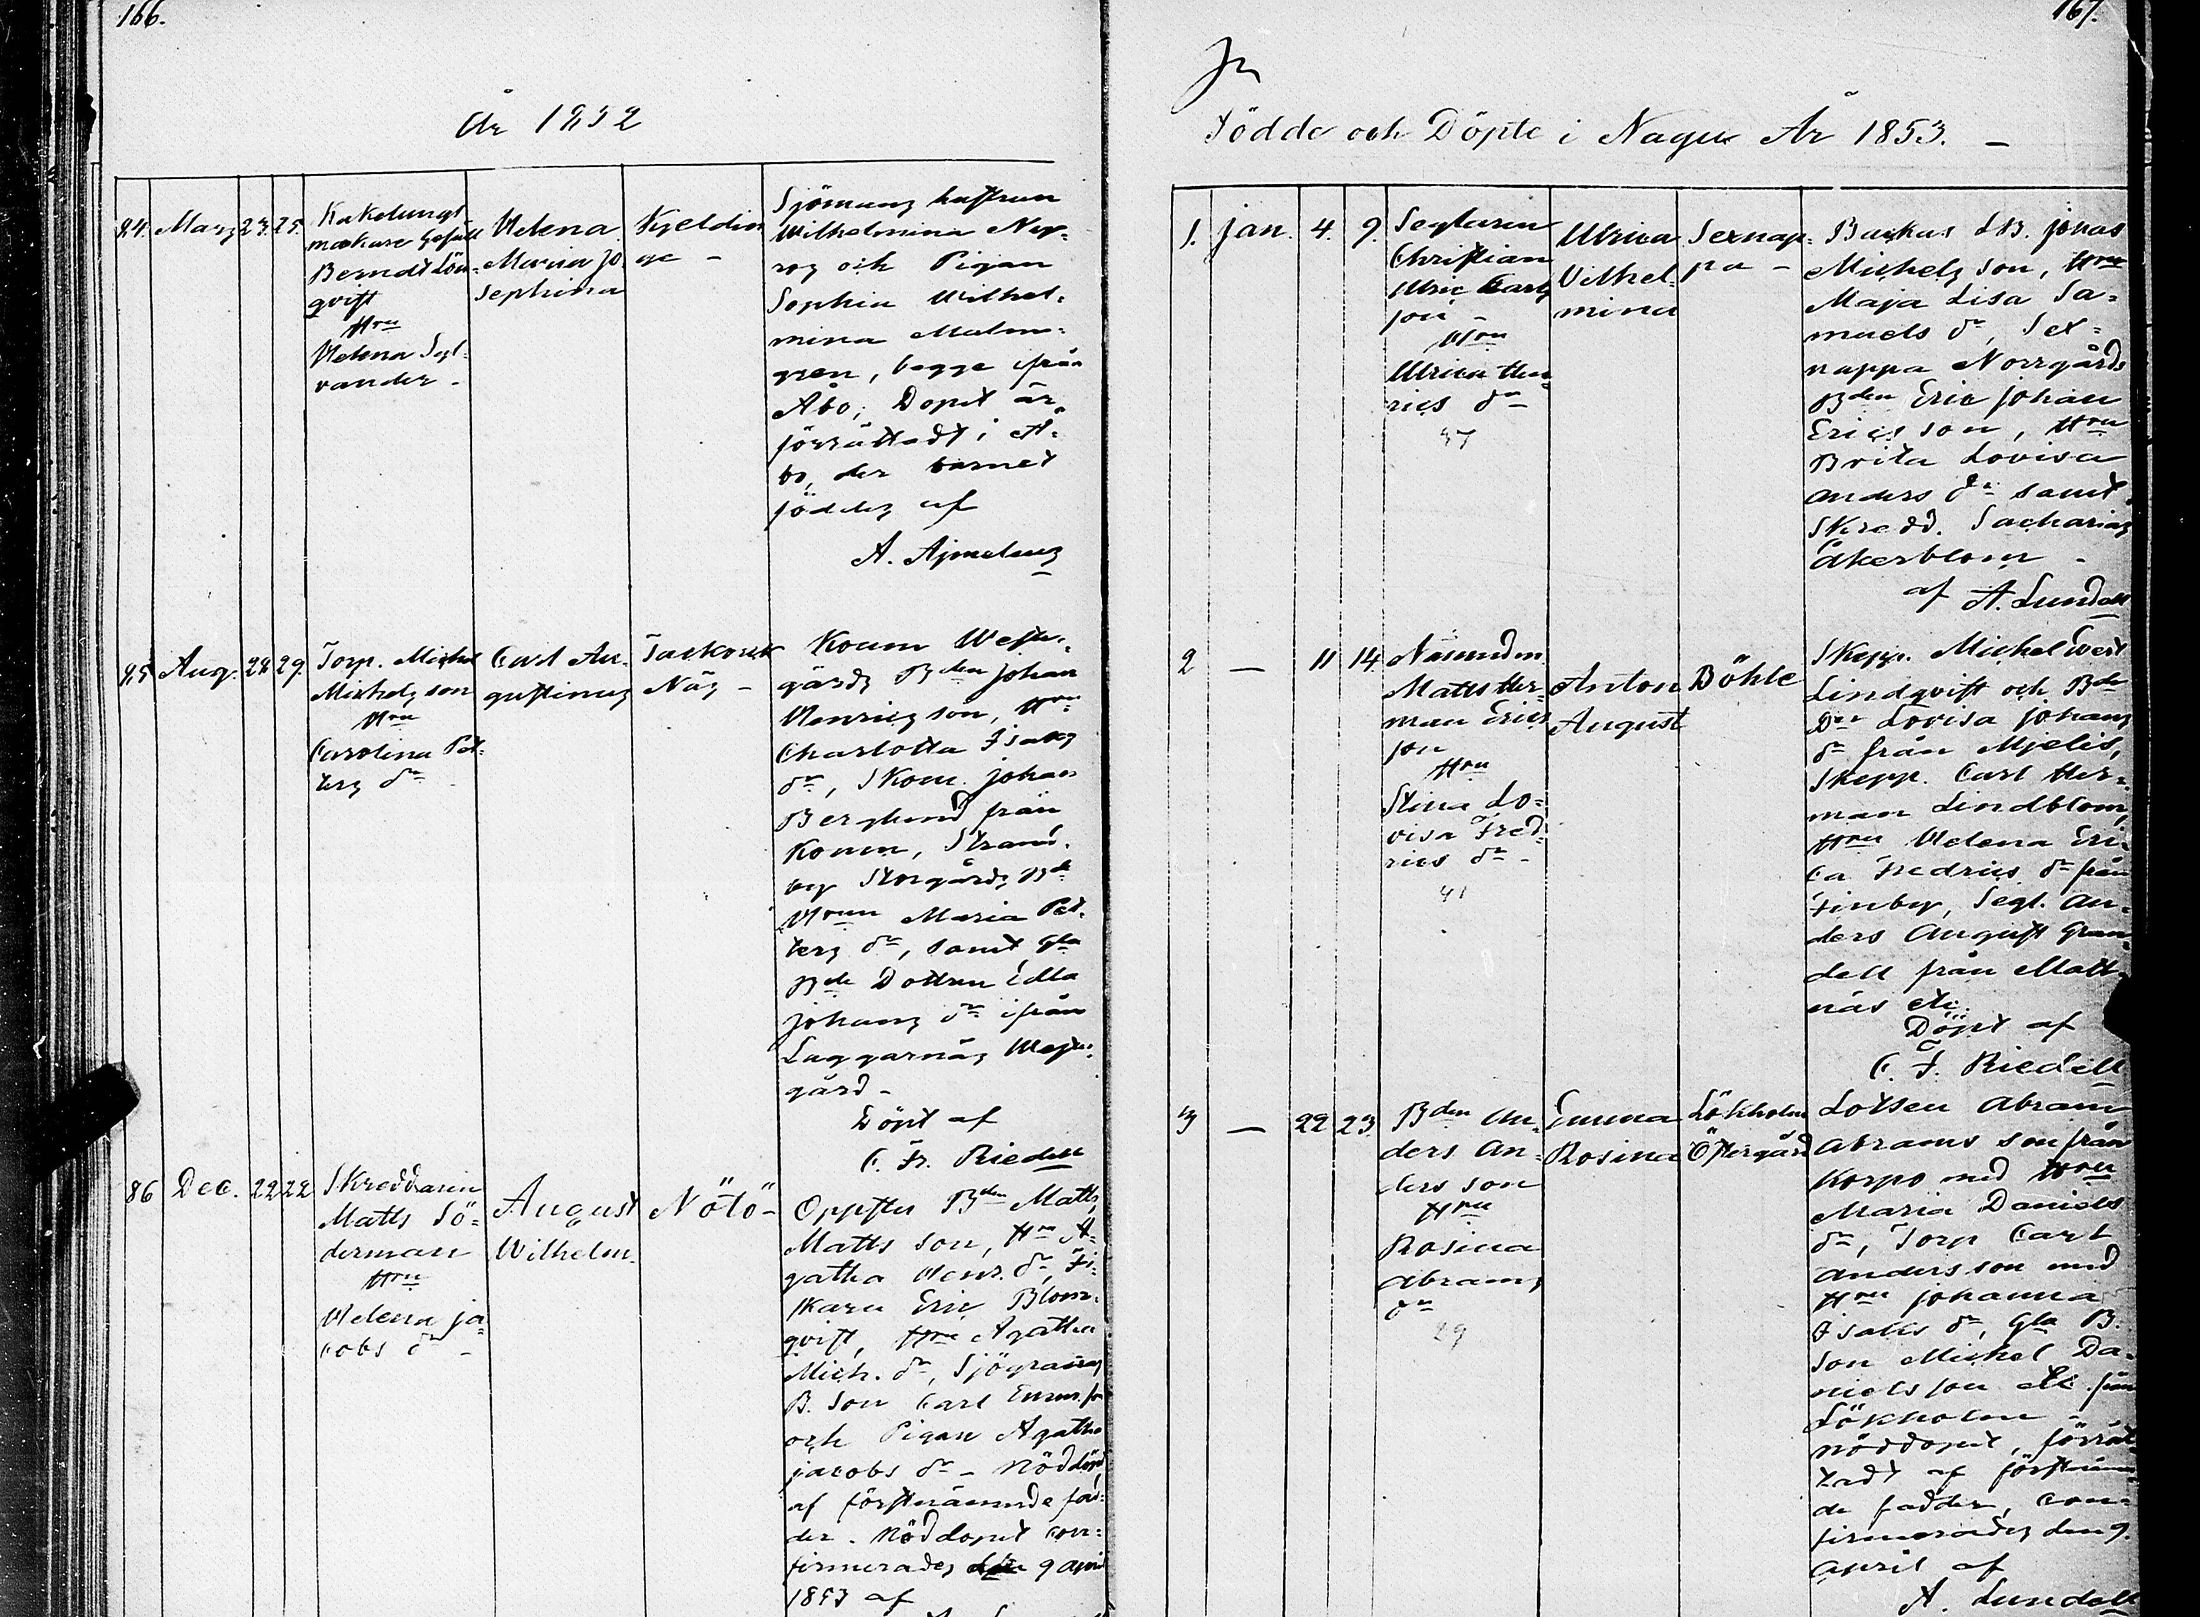 166.
År 1852
84. Marz 23. 25.
Kakelungs
makare Gesäll
Berndt Lön-
qvist
Hru
Helena Syl-
vander -
Helena
Maria Jo-
sephina
Kyeldin
ge -
Sjömans hustrun
Wilhelmina
och Pigan
Sophia Wilhel-
mina Malm-
gren, begge ifrån
Åbo; Dopet är
förrättadt i Å-
bo, der barnet
föddes af
A. Ajmelaus
85 Aug. 28 29.
Torp. Michel
Michels son
Hru
Carolina Pet-
ters dr
Carl Au-
gustinus
Näs -
Koum West-
gårds Bden Johan
Henrics son, Hru
Charlotta Isaks
dr, Skom. Johan
Berglund från
Koum, Strand-
by Storgårds Bde
Hrun Maria Pet-
ters dr, samt Gla
Bde Dottren Edla
Johans dr ifrån
Laggarnäs Westr-
gård -
Döpt af
C. Fr. Riedell
86 Dec. 22 22
Skreddaren
Matts Sö-
derman
Hru
Helena Ja-
cobs dr -
August
Wilhelm.
Nötö -
Oppstu Bden Matts
Matts son, Hru A-
gatha Henr. dr, Fi-
skaru Eric Blom-
qvist, Hru Agatha
Mich. dr, Sjögranns
B. Son Carl
och Pigan Agatha
Jacobs dr - Nöddöpt
af förstnämnde fad-
der. Nöddopet con-
firmerades 9 april
1853 af
167.
Födde och Döpte i Nagu År 1853. -
1. Jan. 4. 9.
Seglaren
Christian
Ulric Carls
son -
Hru
Ulrica Hen-
rics dr
Ulrica
Vilhel-
mina
Sexnap-
pa -
Backas LB. Jonas
Michels son, Hru
Maja Lisa Sa-
muels dr, Sex-
nappa Norrgårds
Bden Eric Johan
Erics son, Hru
Brita Lovisa
Anders dr samt
Skredd. Sacharias
Åkerblom -
af A. Lundell
2 - 11 14
Nämndm.
Matts Her-
man Erics
son
Hru
Stina Lo-
visa Fred-
rics dr -
41
Anton
August
Böhle
Skepp. Michel West
Lindqvist och Bde
Dr Lovisa Johans
dr från Mjelis,
Skepp. Carl Her-
man Lindblom,
Hru Helena Eri-
ca Fredrics dr från
Finby, Segl. An-
ders August Gran-
dell från Matt-
näs etc.
Döpt af
C. F. Riedell
3 - 22 23
Bden An-
ders An-
ders son
Hru
Rosina
Abrams
dr
29
Emma
Rosina
Lökholm
Östergård
Lotsen Abram
Abrams son från
Korpo med Hru
Maria Daniels
dr, Torp Carl
Anders son med
Hru Johanna
Isaks dr, Gla B.
Son Michel Da-
niels son etc från
Lökholm -
Nöddopet, förrät-
tadt af förstnämn-
de fadder, con-
firmerades den 9.
April af
A. Lundell